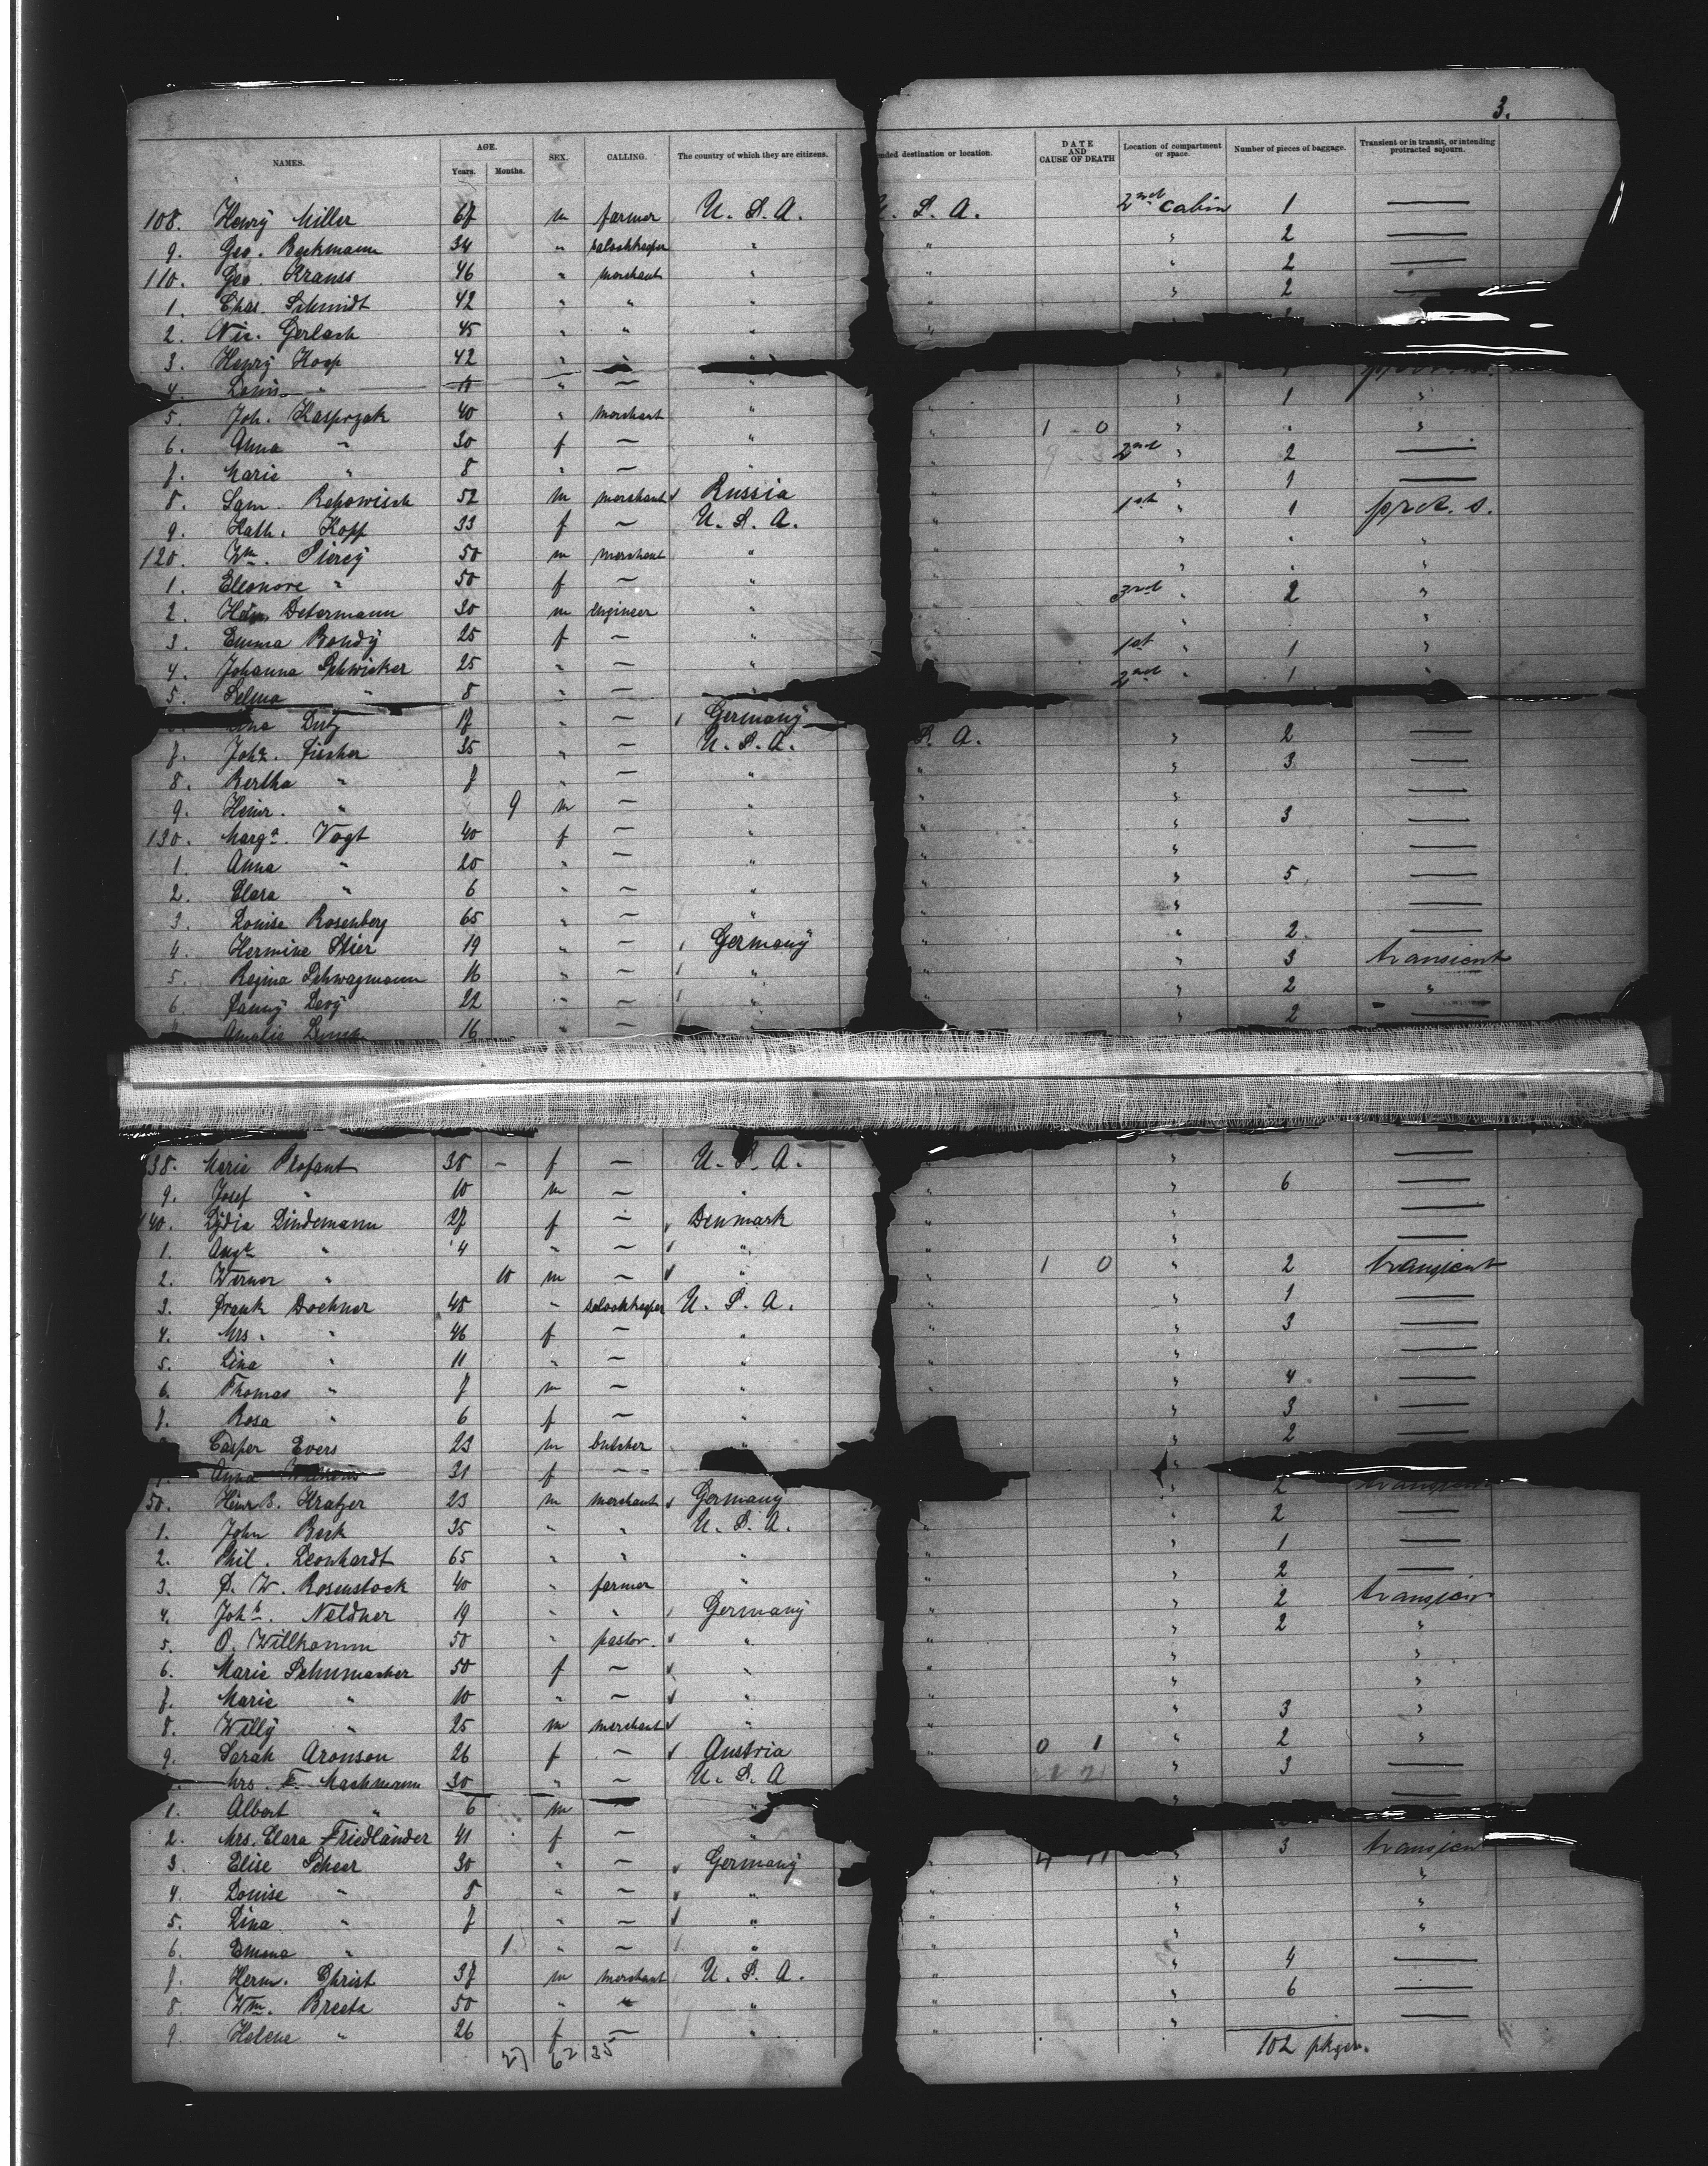 3.
NAMES. AGE. Years. Months. SEX. CALLING. The country of which they are citizens. nded destination or location. DATE AND CAUSE OF DEATH Location of compartment or space. Number of pieces of baggage. Transient or in transit, or intending protracted sojourn.
108. Henry Miller 67 m farmer U. S. A. U. S. A. 2nd cabin 1 —
9. Geo. Beckmann 34 " saloonkeeper " " " 2 —
110. Geo. Krauss 46 " merchant " " " 2 —
1. Chas. Schmidt 42 " " " " " 2 —
2. Nic. Gerlach 45 " " " "
3. Henry Koop 42 " " "
4. Louis " 11 " — "
5. Joh. Kasprzak 40 " merchant " " " 1 "
6. Anna " 30 f — " " 1 0 " " "
7. Marie " 8 " — " " 2nd " 2 —
8. Sam. 52 m merchant Russia " " 1 —
9. Kath. Kopp 33 f — U. S. A. " 1st " 1 prot. s.
120. Wm. Piercy 50 m merchant " " " " "
1. Eleonore " 50 f — " " " " "
2. Determann 30 m engineer " " 3rd " 2 "
3. Emma Bondy 25 f — " " " "
4. Johanna Schwicker 25 " — " " 1st " 1 "
5. Selma " 8 " — " 2nd " 1 "
17 " — Germany
7. Joh. Fischer 35 " — U. S. A. S. A. " 2 —
8. Bertha " 7 " — " " " 3 —
9. Heinr. " 9 m — " " " —
130. Marga. Vogt 40 f — " " " 3 —
1. Anna " 20 " — " " " —
2. Clara " 6 " — " " " 5 —
3. Louise Rosenberg 65 " — " " " —
4. Hermine Stier 19 " — Germany " " 2 —
5. Regina Schwagmann 16 " — " " " 3 transient
6. Fanny Levy 22 " — " " " 2 "
Amalie 16 " — " " 2 —
38. Marie Profant 38 – f — U. S. A. " " —
9. Josef " 10 m — " " " 6 —
140. Lydia Lindemann 27 f — Denmark " " —
1. Aug. " 4 " — " " " —
2. Werner " 10 m — " " 1 0 " 2 transient
3. Frank Dochner 48 " saloonkeeper U. S. A. " " 1 —
4. Mrs. " 46 f — " " " 3 —
5. Lina " 11 " — " " " —
6. Thomas " 7 m — " " " 4 —
7. Rosa " 6 f — " " 3 —
Casper Evers 23 m butcher " " 2 —
Anna 31 f —
50. Heinr. B. Kratzer 23 m merchant Germany " 2
1. John Beck 35 " " U. S. A. " " 2 —
2. Phil. Leonhardt 65 " " " " " 1 —
3. D. W. Rosenstock 40 " farmer " " " 2 —
4. Joh. Neldner 19 " " Germany " " 2 transient
5. O. Willkomm 50 " pastor " " " 2 "
6. Marie Schumacher 50 f — " " " "
7. Marie " 10 " — " " " "
8. Willy " 25 m merchant " " " 3 "
9. Sarah Aronson 26 f — Austria " 0 1 " 2 "
Mrs. F. Machmann 30 " — U. S. A " 3 —
1. Albert " 6 m — " " —
2. Mrs. Clara Friedländer 41 f — "
3. Elise Scheer 30 " — Germany " " 3 transient
4. Louise " 8 " — " " " "
5. Lina " 7 " — " " " "
6. Emma " 1 " — " " " "
7. Herm. Christ 37 m merchant U. S. A. " " 4 —
8. Wm. 50 " " " " " 6 —
9. Helene " 26 f — " " " —
27 62 35 102 pkgs.